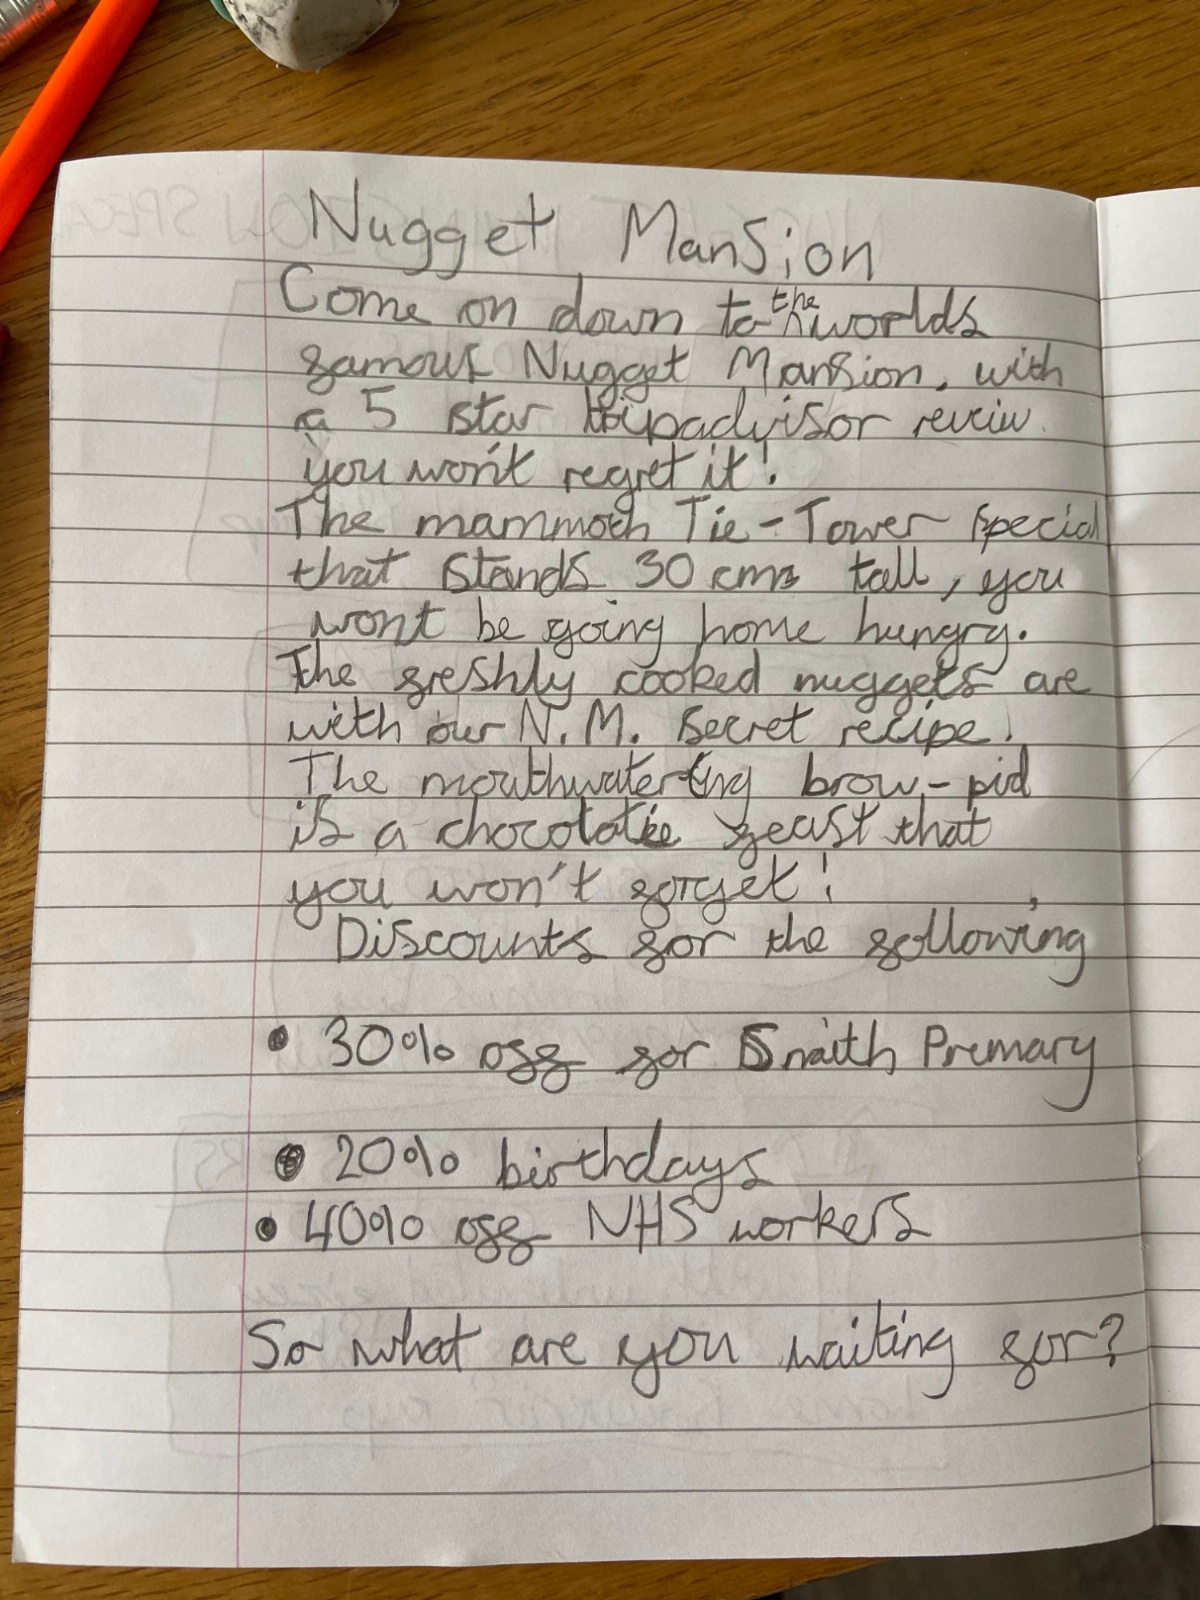 Nugget Mansion
Come on down to the worlds
famous Nugget Mansion, with
a 5 star tripadvisor reveiw.
you won't regret it!
The mammoth Tie-Tower special
that stands 30 cms tall, you
wont be going home hungry.
The freshly cooked nuggets are
with our N.M. secret recipe!
The mouthwatering brow-pid
is a chocolate feast that
you won't forget!
Discounts for the following
• 30% off for Snaith Premary
• 20% birthdays
• 40% off NHS workers
So what are you waiting for?